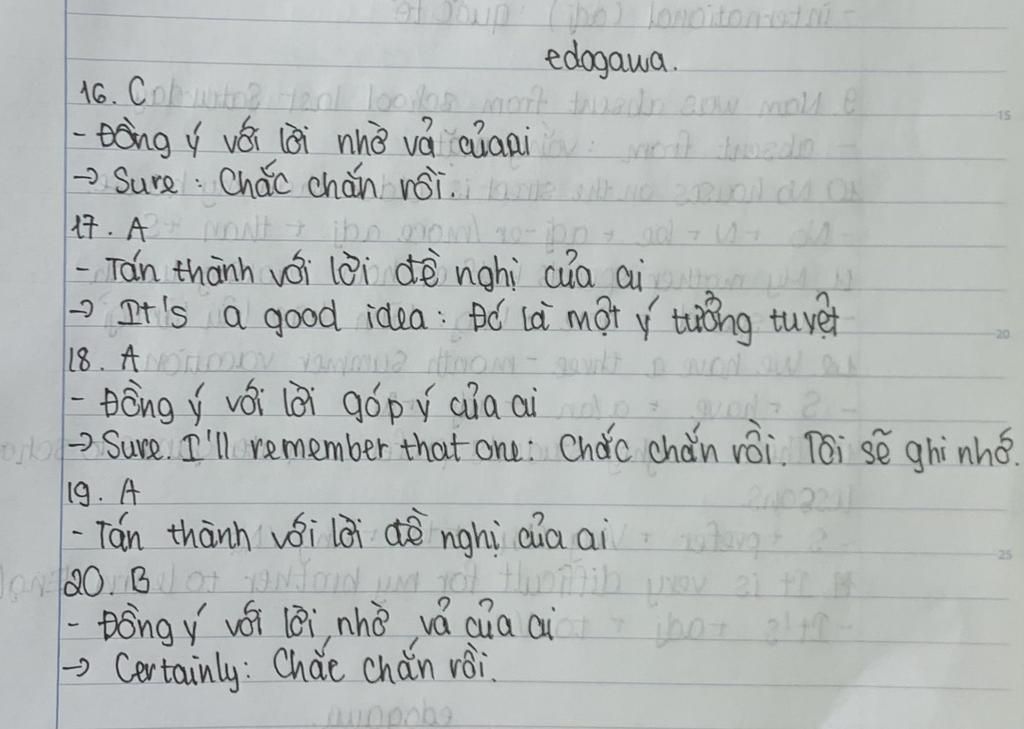 edogawa.
16. C
- Đồng ý với lời nhờ vả của ai
→ Sure: Chắc chắn rồi.
17. A
- Tán thành với lời đề nghị của ai
→ It's a good idea: Đó là một ý tưởng tuyệt
18. A
- Đồng ý với lời góp ý của ai
→ Sure. I'll remember that one: Chắc chắn rồi. Tôi sẽ ghi nhớ.
19. A
- Tán thành với lời đề nghị của ai
20. B
- Đồng ý với lời nhờ vả của ai
→ Certainly: Chắc chắn rồi.